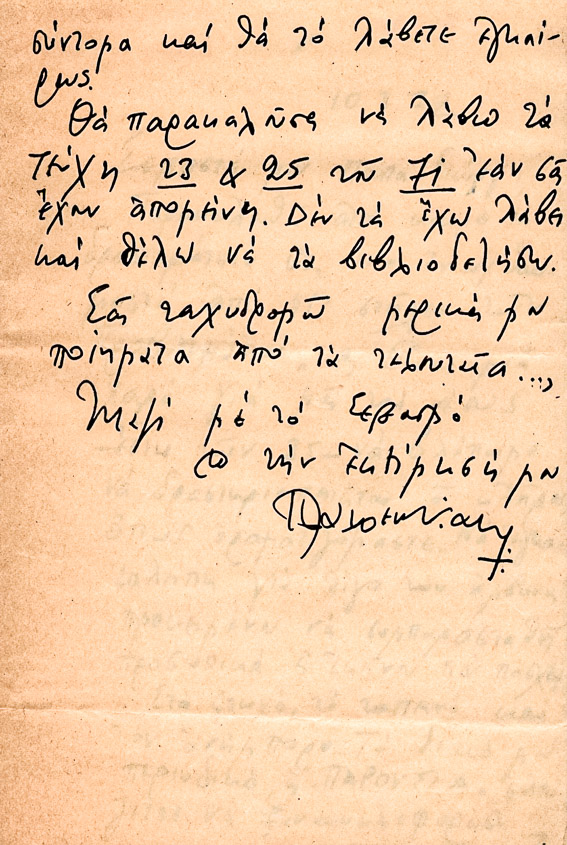 σύντομα καί θά τό λάβετε ἐγκαί-
ρως.
Θά παρακαλοῦσα νά λάβω τά
τεύχη 23 & 25 τοῦ 71 ἐάν σᾶς
ἔχουν ἀπομείνη. Δέν τά ἔχω λάβει
καί θέλω νά τά βιβλιοδετήσω.
Σᾶς ταχυδρομῶ μερικά μου
ποιήματα ἀπό τά τελευταῖα...,
Μαζί μέ τό Σεβασμό
& τήν ἐκτίμησή μου